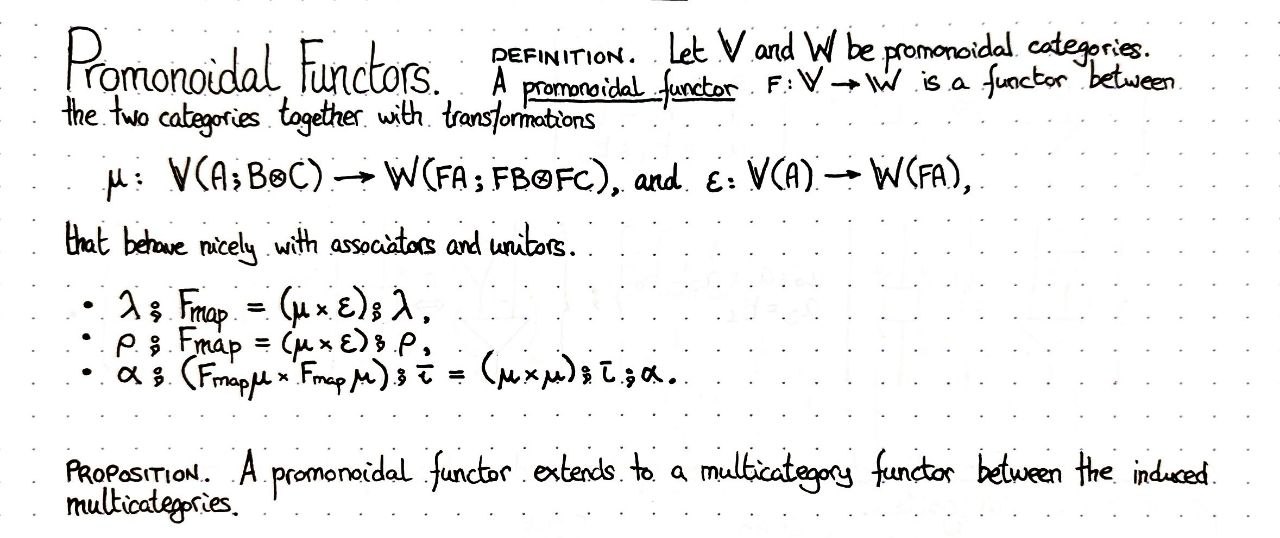 Promonoidal Functors. DEFINITION. Let 𝕍 and 𝕎 be promonoidal categories.
A promonoidal functor F: 𝕍 → 𝕎 is a functor between
the two categories together with transformations
μ: 𝕍(A; B⊗C) → 𝕎(FA; FB⊗FC), and ε: 𝕍(A) → 𝕎(FA),
that behave nicely with associators and unitors.
• λ ⨟ Fmap = (μ × ε) ⨟ λ,
• ρ ⨟ Fmap = (μ × ε) ⨟ ρ,
• α ⨟ (Fmap μ × Fmap μ) ⨟ τ̄ = (μ × μ) ⨟ τ̄ ⨟ α.
PROPOSITION. A promonoidal functor extends to a multicategory functor between the induced
multicategories.